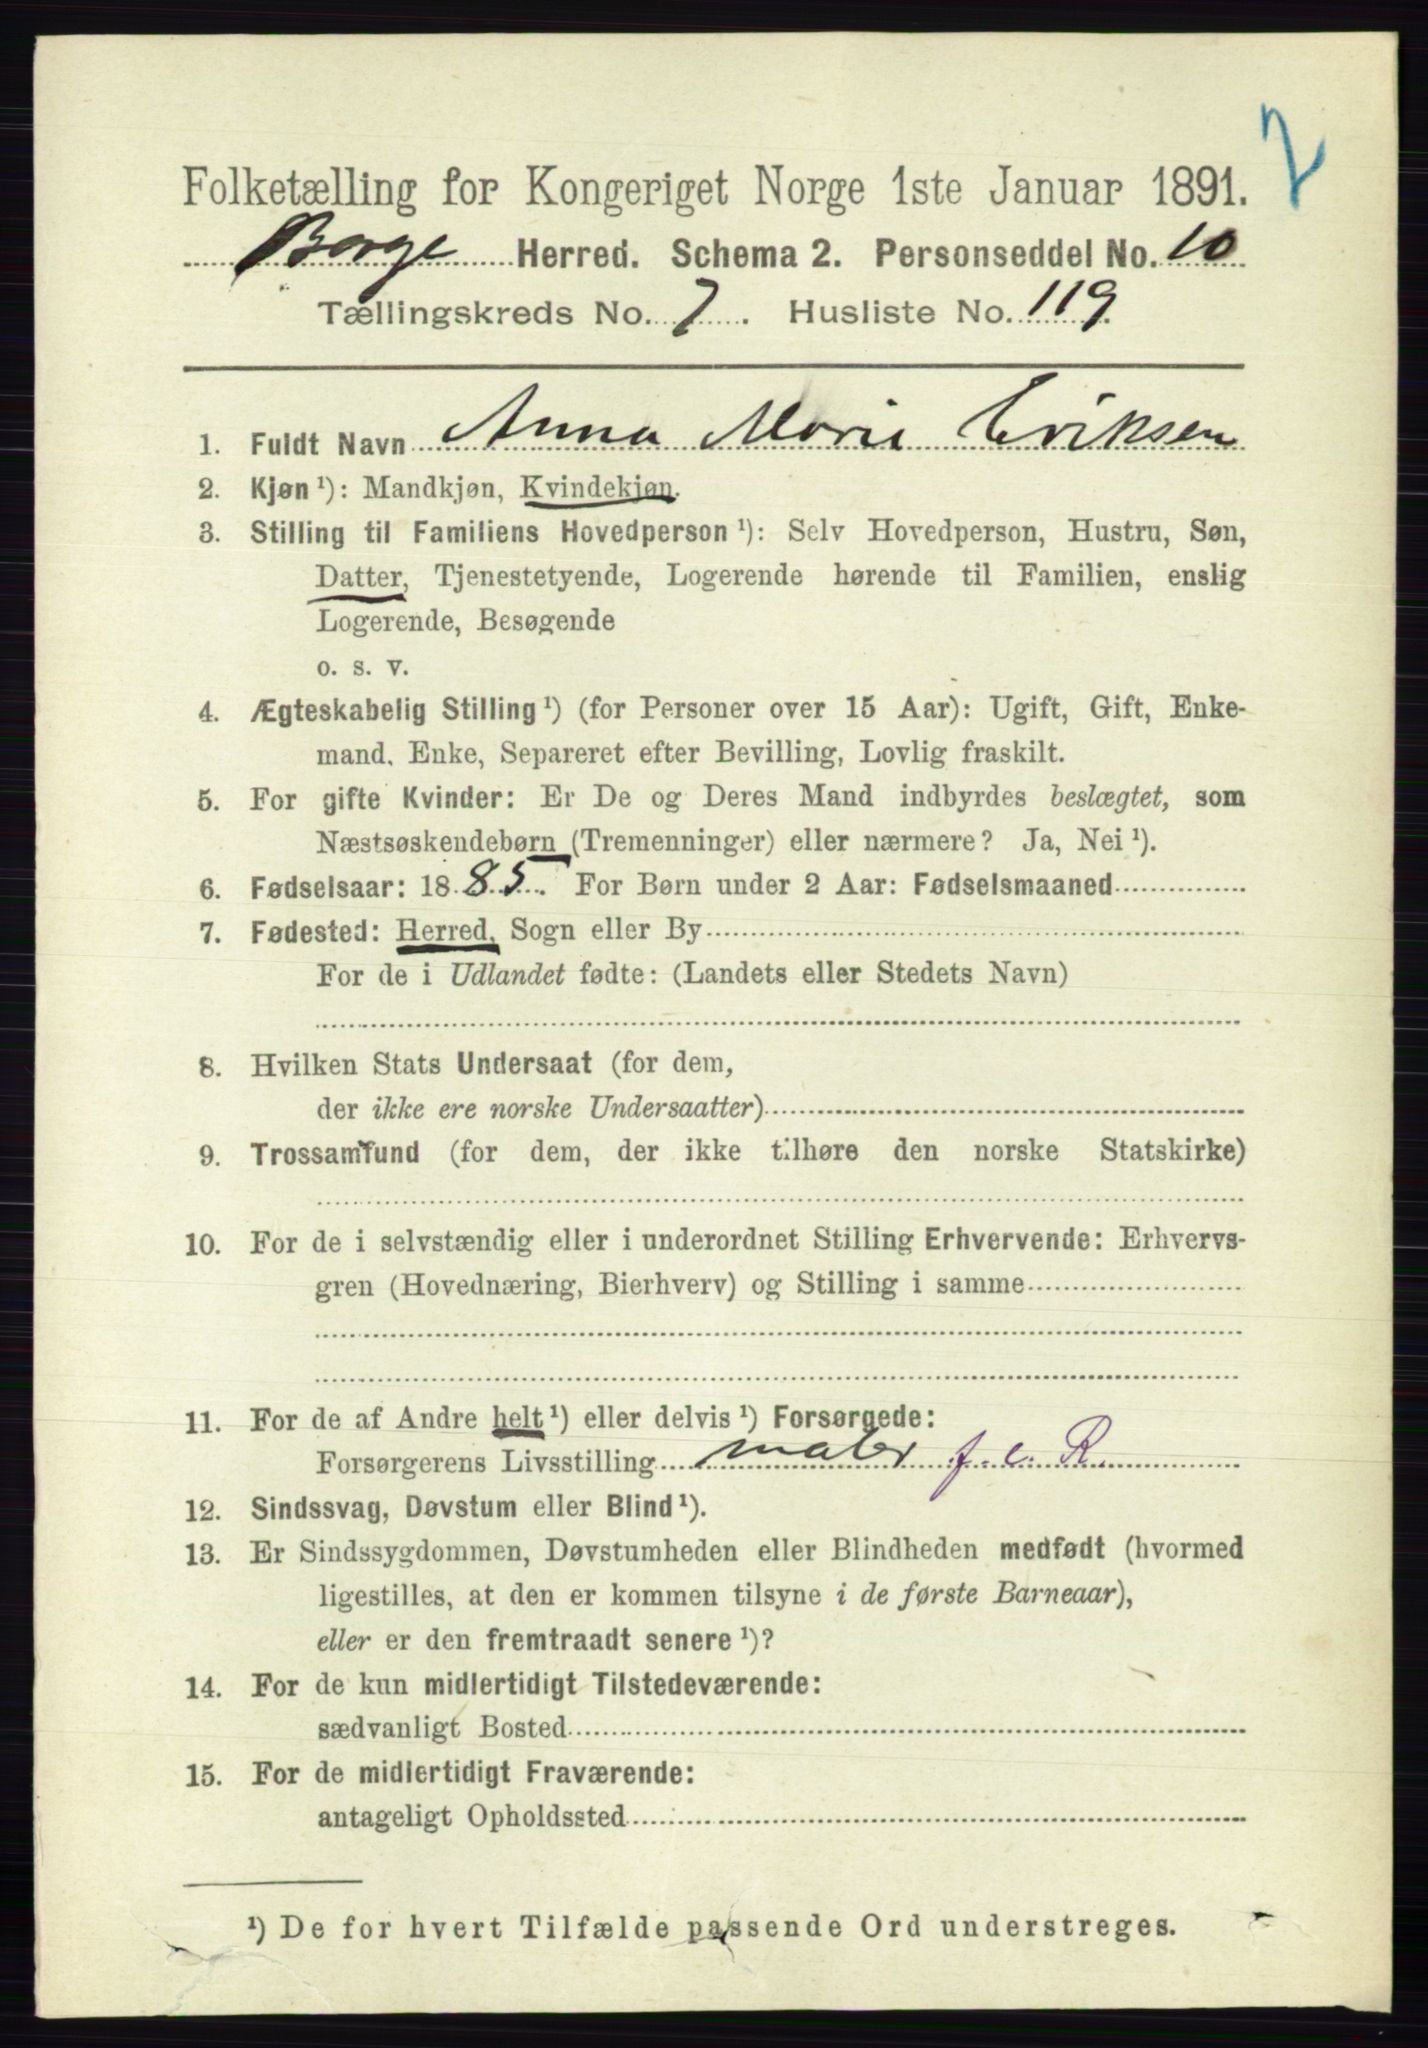 2
Folketælling for Kongeriget Norge 1ste Januar 1891.
Borge Herred. Schema 2. Personseddel No. 10
Tællingskreds No. 7. Husliste No. 119.
1. Fuldt Navn Anna Marie Eriksen
2. Kjøn ¹): Mandkjøn, Kvindekjøn.
3. Stilling til Familiens Hovedperson ¹): Selv Hovedperson, Hustru, Søn,
Datter, Tjenestetyende, Logerende hørende til Familien, enslig
Logerende, Besøgende
o. s. v.
4. Ægteskabelig Stilling ¹) (for Personer over 15 Aar): Ugift, Gift, Enke-
mand, Enke, Separeret efter Bevilling, Lovlig fraskilt.
5. For gifte Kvinder: Er De og Deres Mand indbyrdes beslægtet, som
Næstsøskendebørn (Tremenninger) eller nærmere? Ja, Nei ¹).
6. Fødselsaar: 1885. For Børn under 2 Aar: Fødselsmaaned
7. Fødested: Herred, Sogn eller By
For de i Udlandet fødte: (Landets eller Stedets Navn)
8. Hvilken Stats Undersaat (for dem,
der ikke ere norske Undersaatter)
9. Trossamfund (for dem, der ikke tilhøre den norske Statskirke)
10. For de i selvstændig eller i underordnet Stilling Erhvervende: Erhvervs-
gren (Hovednæring, Bierhverv) og Stilling i samme
11. For de af Andre helt ¹) eller delvis ¹) Forsørgede:
Forsørgerens Livsstilling maler f. e. R.
12. Sindssvag, Døvstum eller Blind ¹).
13. Er Sindssygdommen, Døvstumheden eller Blindheden medfødt (hvormed
ligestilles, at den er kommen tilsyne i de første Barneaar),
eller er den fremtraadt senere ¹)?
14. For de kun midlertidigt Tilstedeværende:
sædvanligt Bosted
15. For de midlertidigt Fraværende:
antageligt Opholdssted
¹) De for hvert Tilfælde passende Ord understreges.